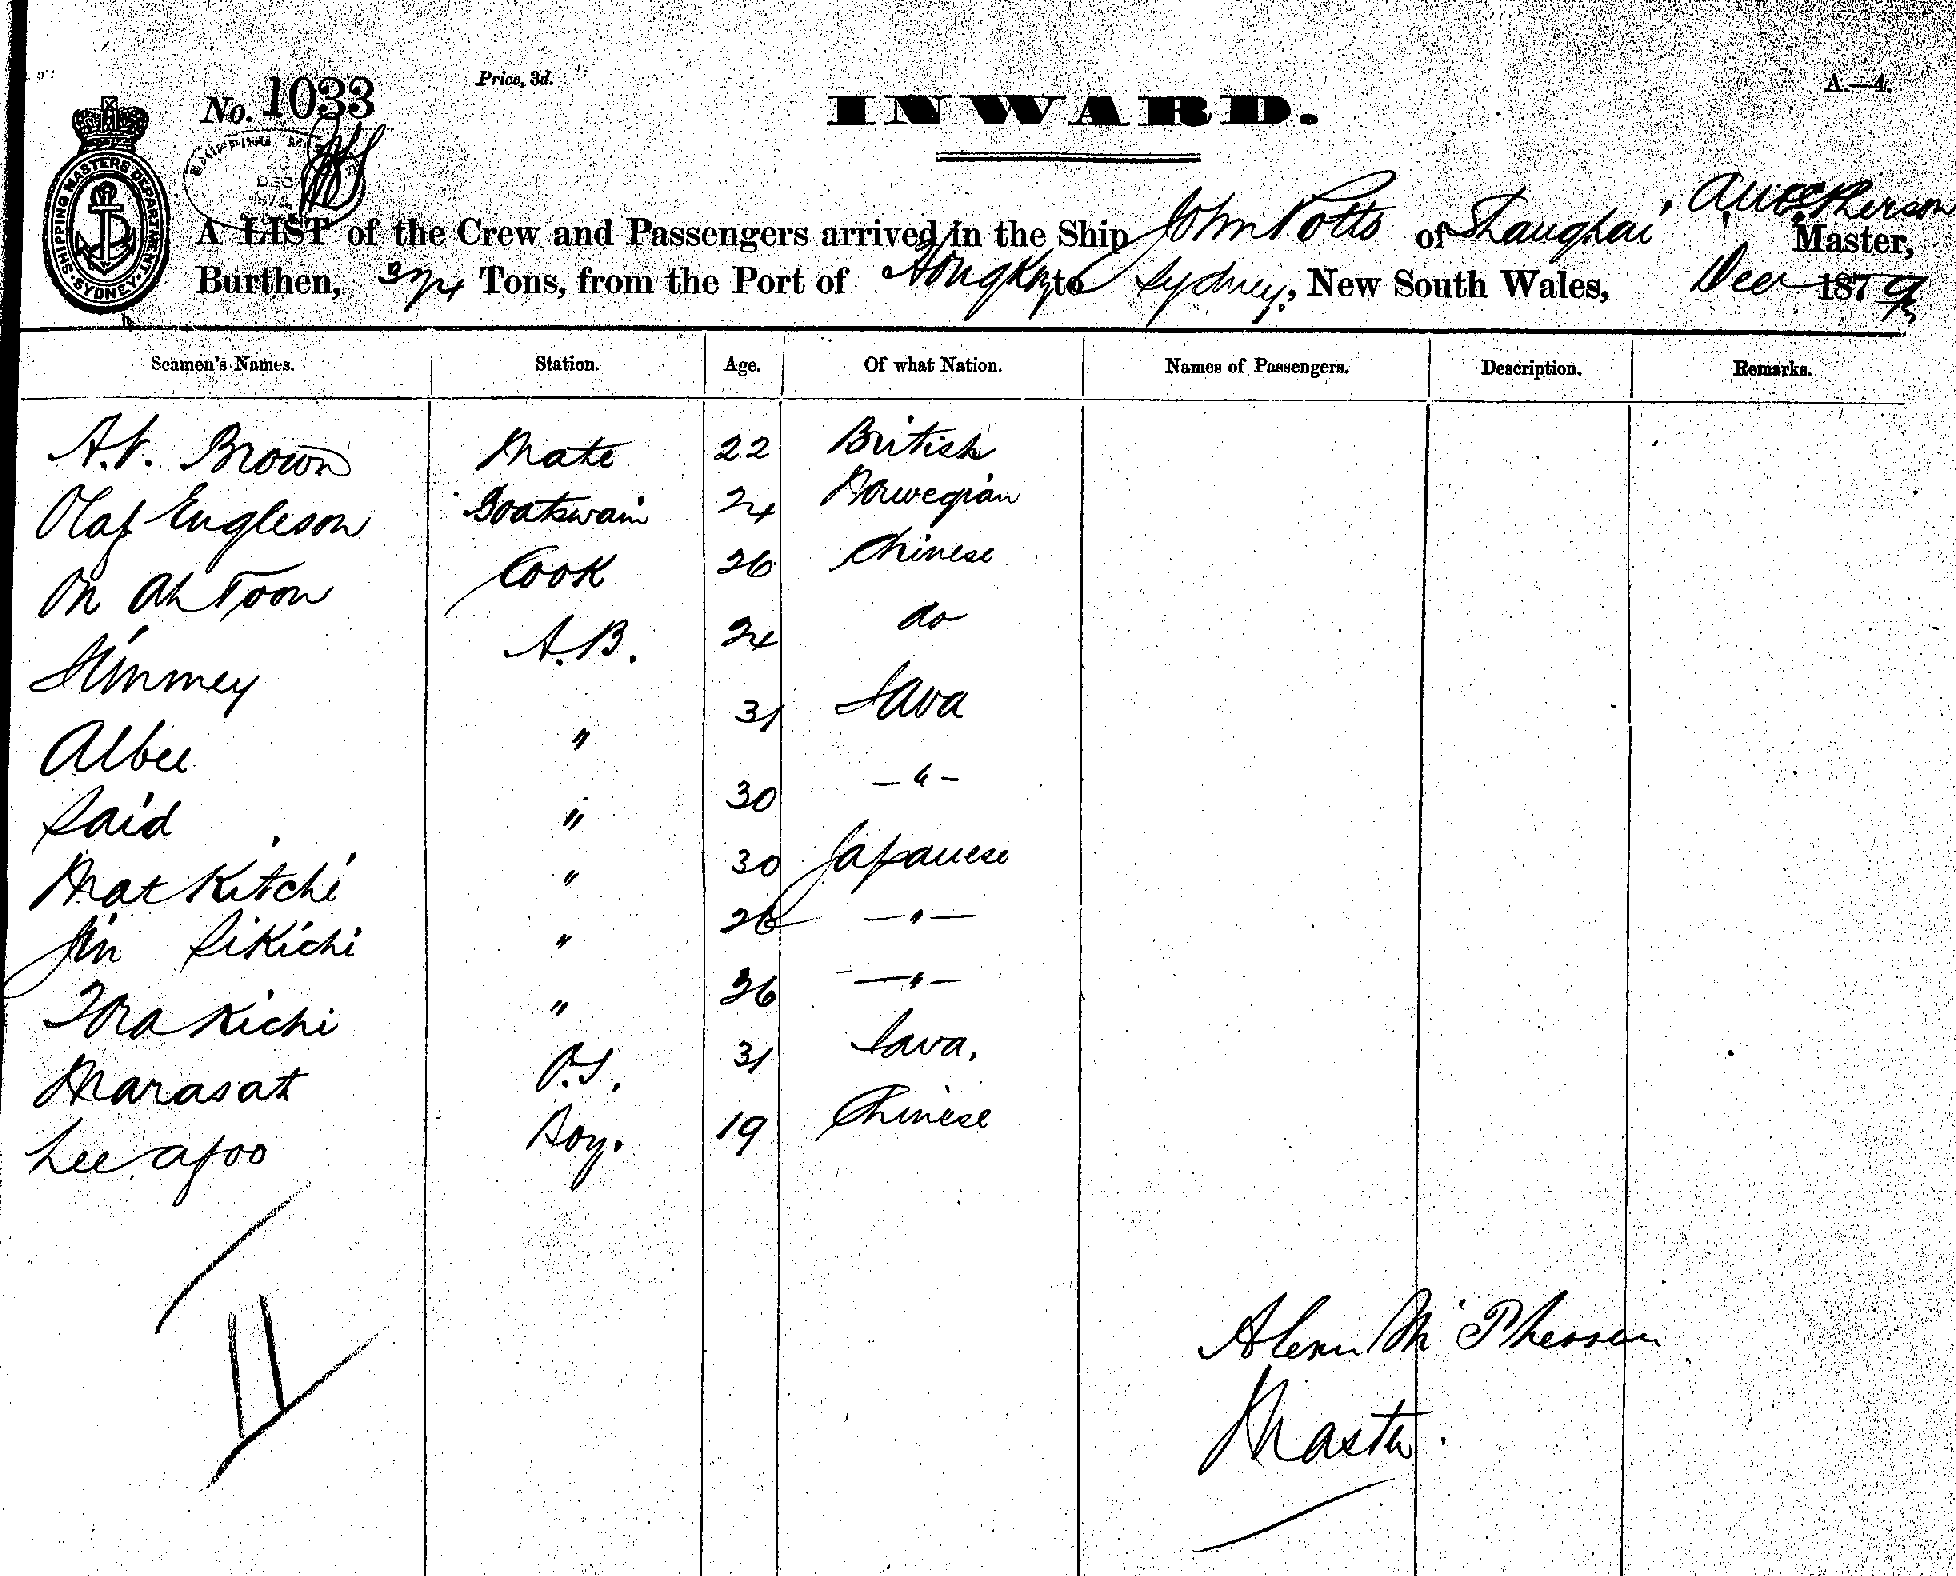 No. 1033
Price, 3d.
A.—4.
INWARD.
SHIPPING MASTERS DEPARTMENT SYDNEY
A LIST of the Crew and Passengers arrived in the Ship John Potts of Shanghai A McPherson Master,
Burthen, Tons, from the Port of Hongkong to Sydney, New South Wales, Dec 1879
Seamen's Names. Station. Age. Of what Nation. Names of Passengers. Description. Remarks.
A. Brown Mate 22 British
Olaf Engleson Boatswain 24 Norwegian
On Ah Toon Cook 26 Chinese
Jimmey A.B. 24 do
Albee " 31 Java
Said " 30 — " —
Mat Kitchi " 30 Japanese
Jin Sikichi " 26 — " —
Tora Kichi " 26 — " —
Marasat O.S. 31 Java,
Lee afoo Boy. 19 Chinese
11
McPherson
Master.